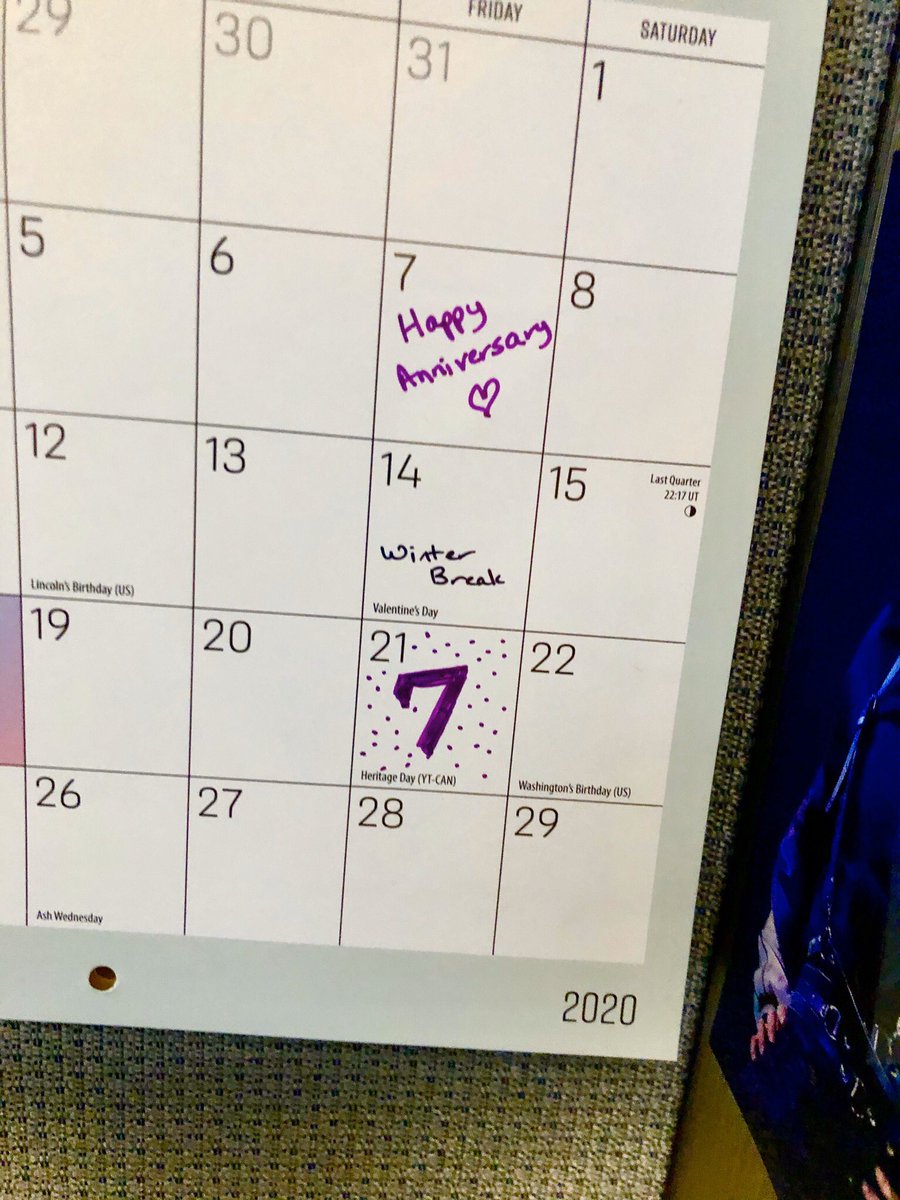 FRIDAY
SATURDAY
29
30
31
1
5
6
7
8
Happy
Anniversary
12
13
14
15
Last Quarter
22:17 UT
Winter
Break
Lincoln's Birthday (US)
Valentine's Day
19
20
21
22
7
Heritage Day (YT-CAN)
Washington's Birthday (US)
26
27
28
29
Ash Wednesday
2020